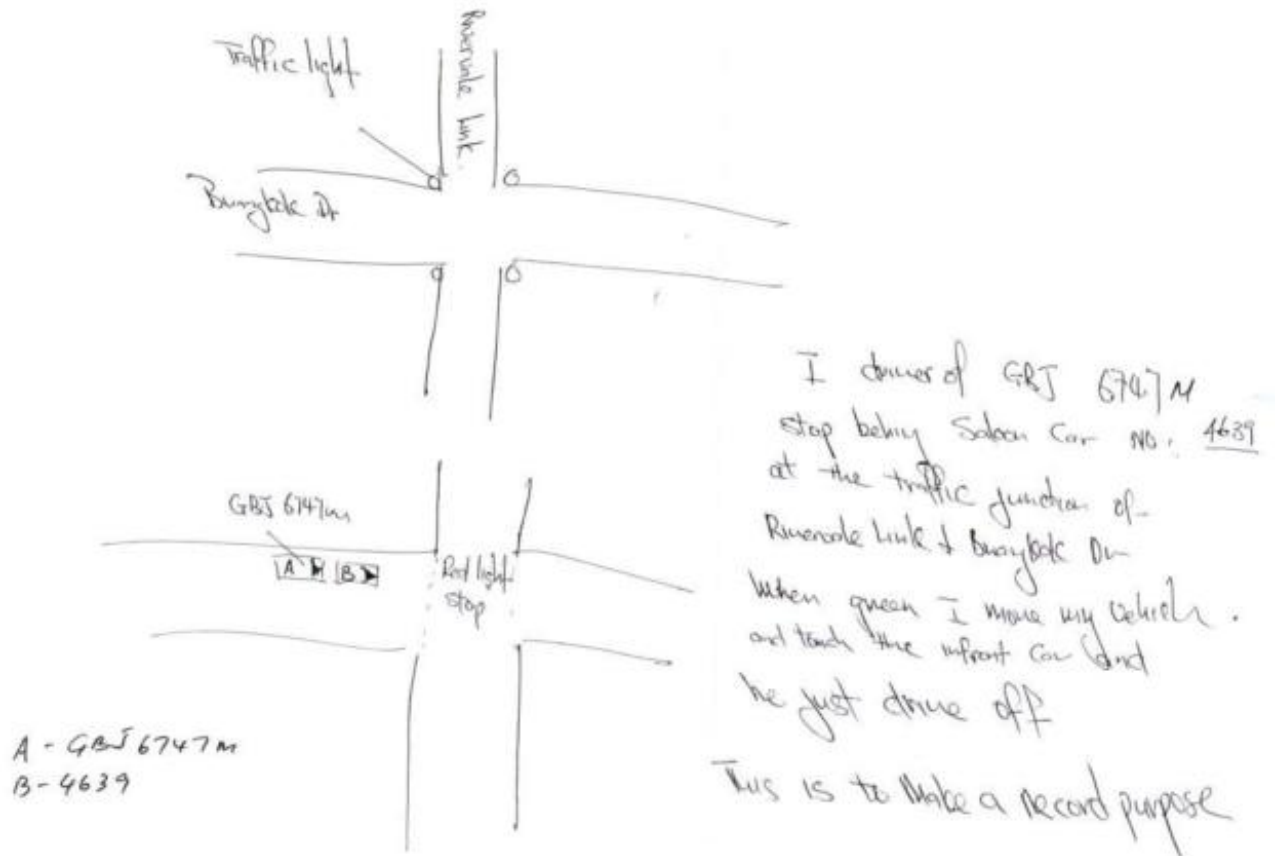 Traffic light
Rivervale Link
Buangkok Dr
GBJ 6747M
A B
Red light
stop
A - GBJ 6747M
B - 4639
I driver of GBJ 6747M
stop behing Saloon Car NO. 4639
at the traffic junction of
Rivervale Link & Buangkok Dr
When green I move my vehicle.
and touch the infront Car and
he just drive off
This is to Make a record purpose